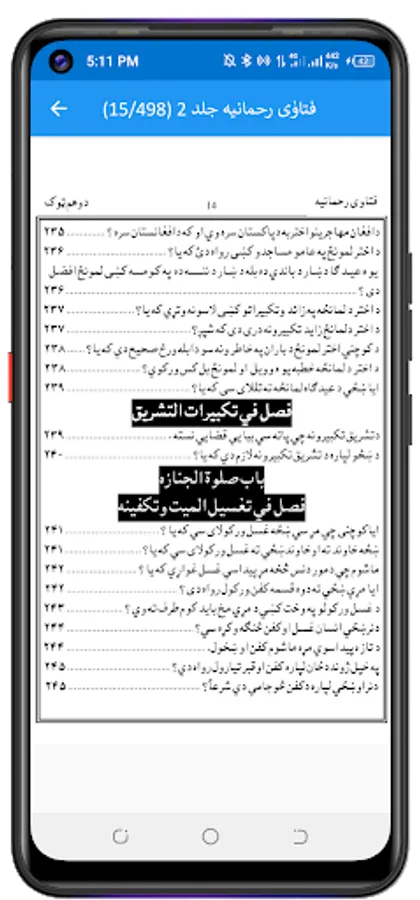 5:11 PM 4G 442 K/s 42
فتاوٰی رحمانیه جلد 2 (15/498)
فتاوی رحمانیه ۱۵ دوهم ټوک
د افغان مهاجرینو اختر به د پاکستان سره وي او که د افغانستان سره ؟ ۲۳۵
د اختر لمونځ په عامو مساجدو کښی رواه دئ که یا؟ ۲۳۶
یوه عیدګاه د ښار د باندي ده بله د ښار د ننـــه ده په کومـــه کښی لمونځ افضل
دی؟ ۲۳۶
د اختر د لمانځه په زائد و تکبیراتو کښی لاسونه وتړي که یا؟ ۲۳۷
د اختر د لمانځه زاید تکبیرونه دری دی که شپږ؟ ۲۳۷
د کوچني اختر لمونځ د باران په خاطر ونه سو دا بله ورځ صحیح دي که یا؟ ۲۳۸
د اختر د لمانځه خطبه یوه وویل او لمونځ بل کس ورکوي؟ ۲۳۸
ایا ښځي د عیدګاه لمانځه ته تللای سی که یا؟ ۲۳۹
فصل في تکبیرات التشریق
د تشریق تکبیرونه چي پاته سي بیا یي قضایي نسته ۲۳۹
د ښځو لپاره د تشریق تکبیرونه لازم دي که یا؟ ۲۴۰
باب صلوة الجنازه
فصل في تغسیل المیت و تکفینه
ایا کوچنی چي مړ سي ښځه غسل ورکولای سي که یا؟ ۲۴۱
ښځه خاوند ته او خاوند ښځي ته غسل ورکولای سي که یا؟ ۲۴۱
ماشوم چي د مور د نس څخه مړ پیدا سي غسل غواړي که یا؟ ۲۴۲
ایا مړي ښځي ته دوه قسمه کفن ورکول رواه دی؟ ۲۴۲
د غسل ورکولو په وخت کښي د مړي مخ باید کوم طرف ته وي؟ ۲۴۳
د نرښځي انسان غسل او کفن څنګه وکړه سي؟ ۲۴۴
د تازه پیدا سوي مړه ماشوم کفن او ښخول ۲۴۴
په خپل ژوند د ځان لپاره کفن او قبر تیارول رواه دي؟ ۲۴۵
د نر او ښځي لپاره د کفن څو جامي دي شرعاً؟ ۲۴۵